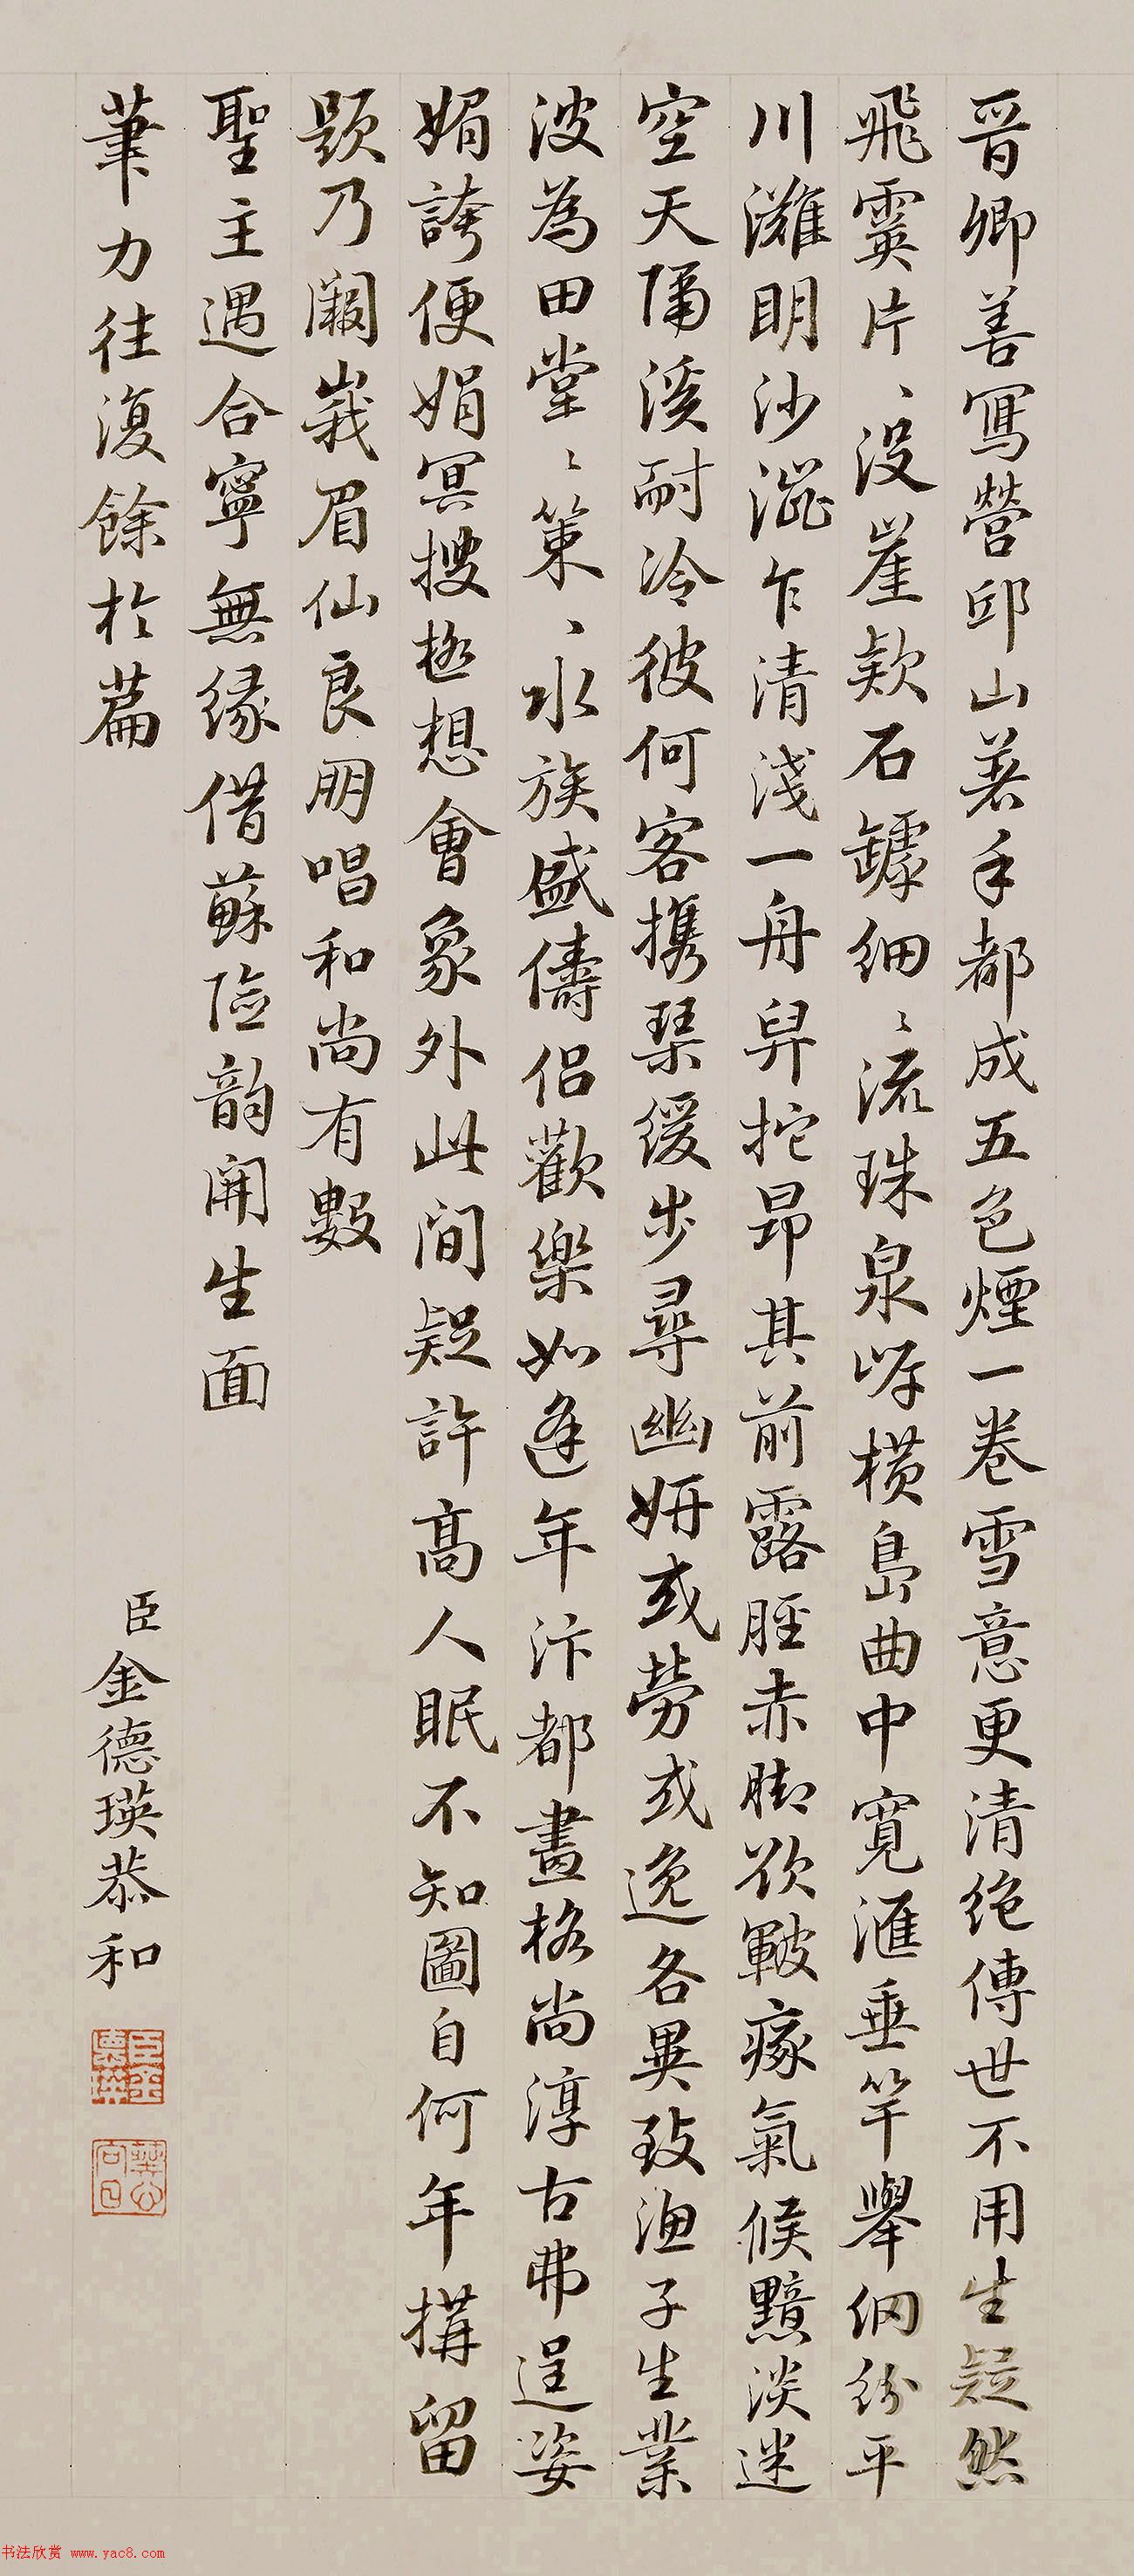 晉卿善寫營邱山著手都成五色煙一卷雪意更清絕傳世不用生疑然
飛霙片、沒崖欵石罅細、流珠泉㟁橫島曲中寬滙垂竿舉網紛平
川灘明沙澁乍清淺一舟舁挖昂其前露脛赤脚欲皸瘃氣候黯淡迷
空天隔溪耐冷彼何客携琴緩步尋幽妍或勞或逸各異致漁子生業
波為田堂、策、水族盛儔侶歡樂如逢年汴都畫格尚淳古弗逞姿
媚誇便娟冥搜極想會象外此間疑許高人眠不知圖自何年搆留
題乃闕峩眉仙良朋唱和尚有數
聖主遇合寧無緣借蘇險韵開生面
筆力往復餘於篇
臣金德瑛恭和
臣金德瑛
书法欣赏 www.yac8.com